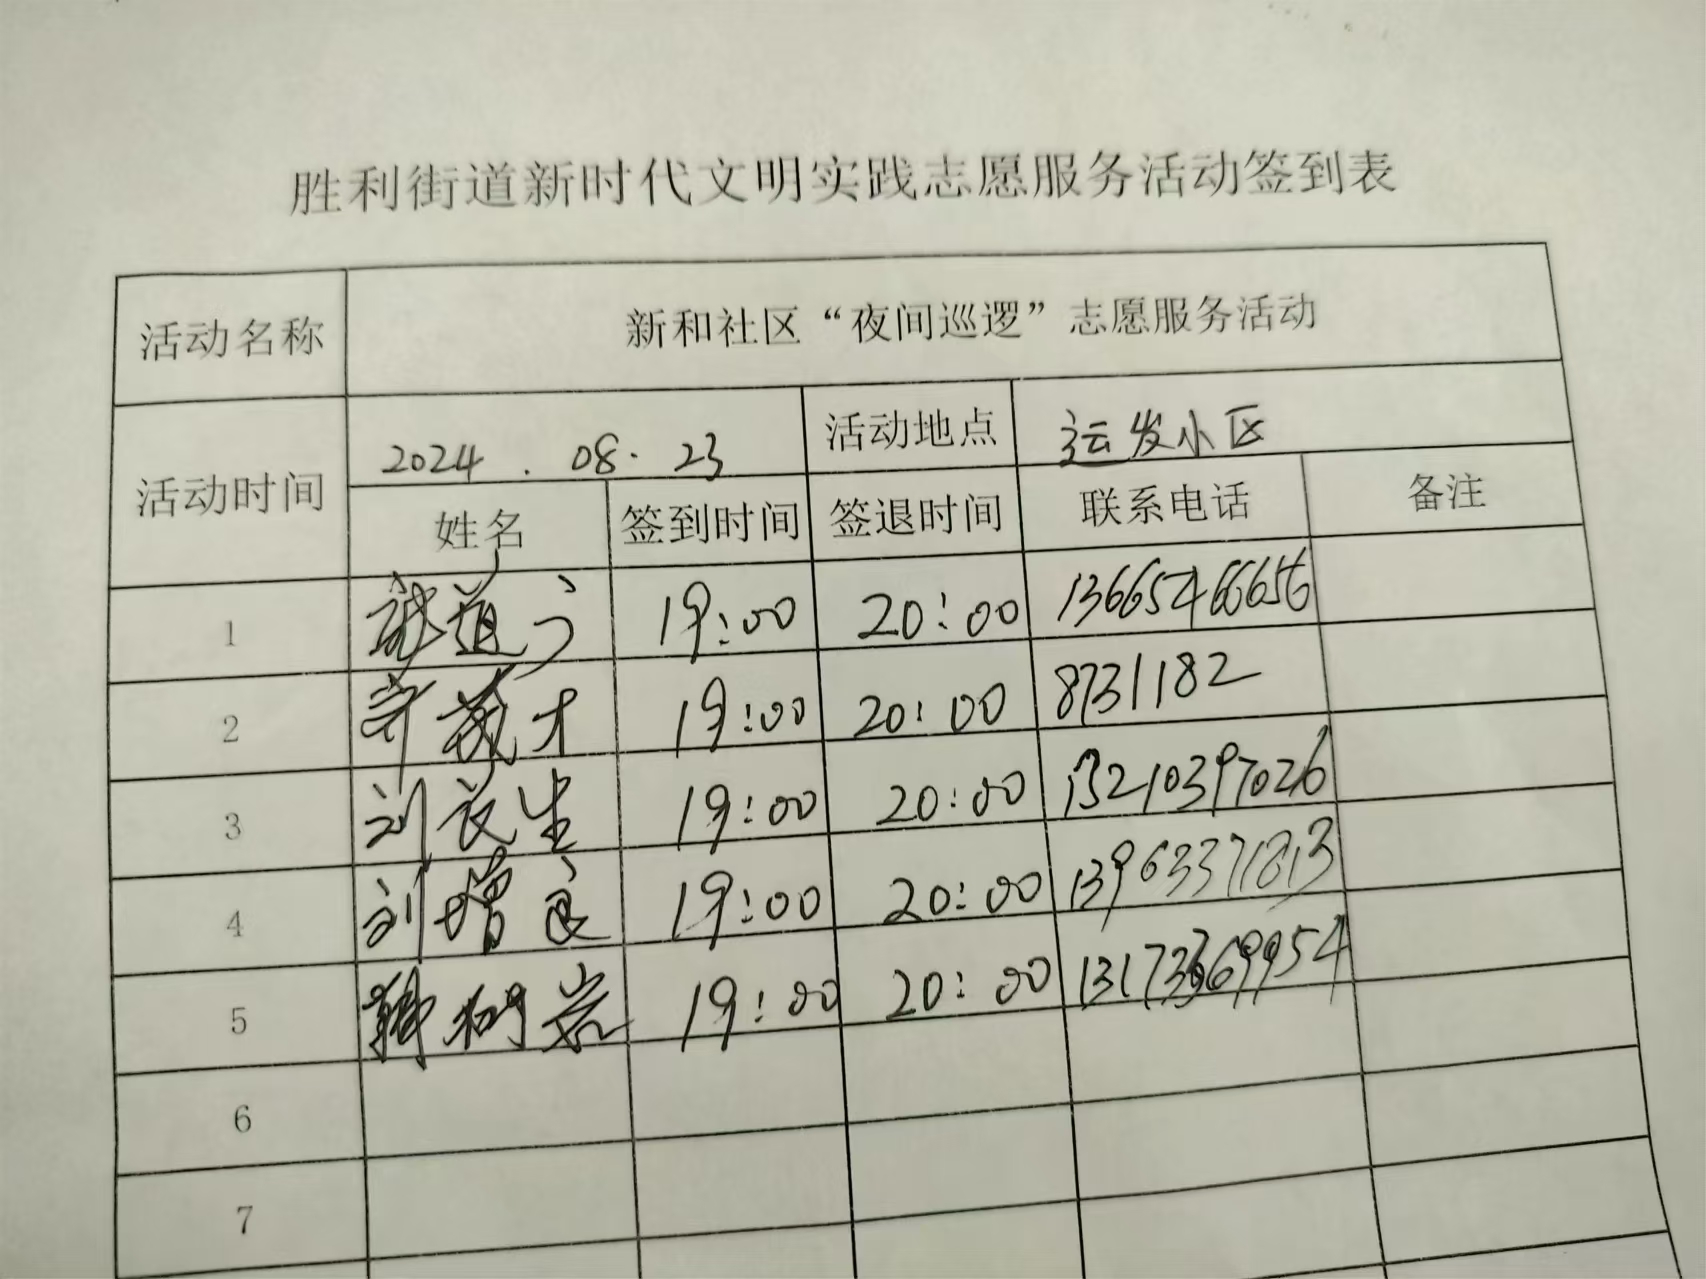 胜利街道新时代文明实践志愿服务活动签到表
活动名称 新和社区“夜间巡逻”志愿服务活动
活动时间 2024.08.23 活动地点 运发小区
姓名 签到时间 签退时间 联系电话 备注
1 19:00 20:00 13665466656
2 19:00 20:00 8731182
3 刘长生 19:00 20:00 13210397026
4 刘增良 19:00 20:00 13963371813
5 韩树岩 19:00 20:00 13173369954
6
7